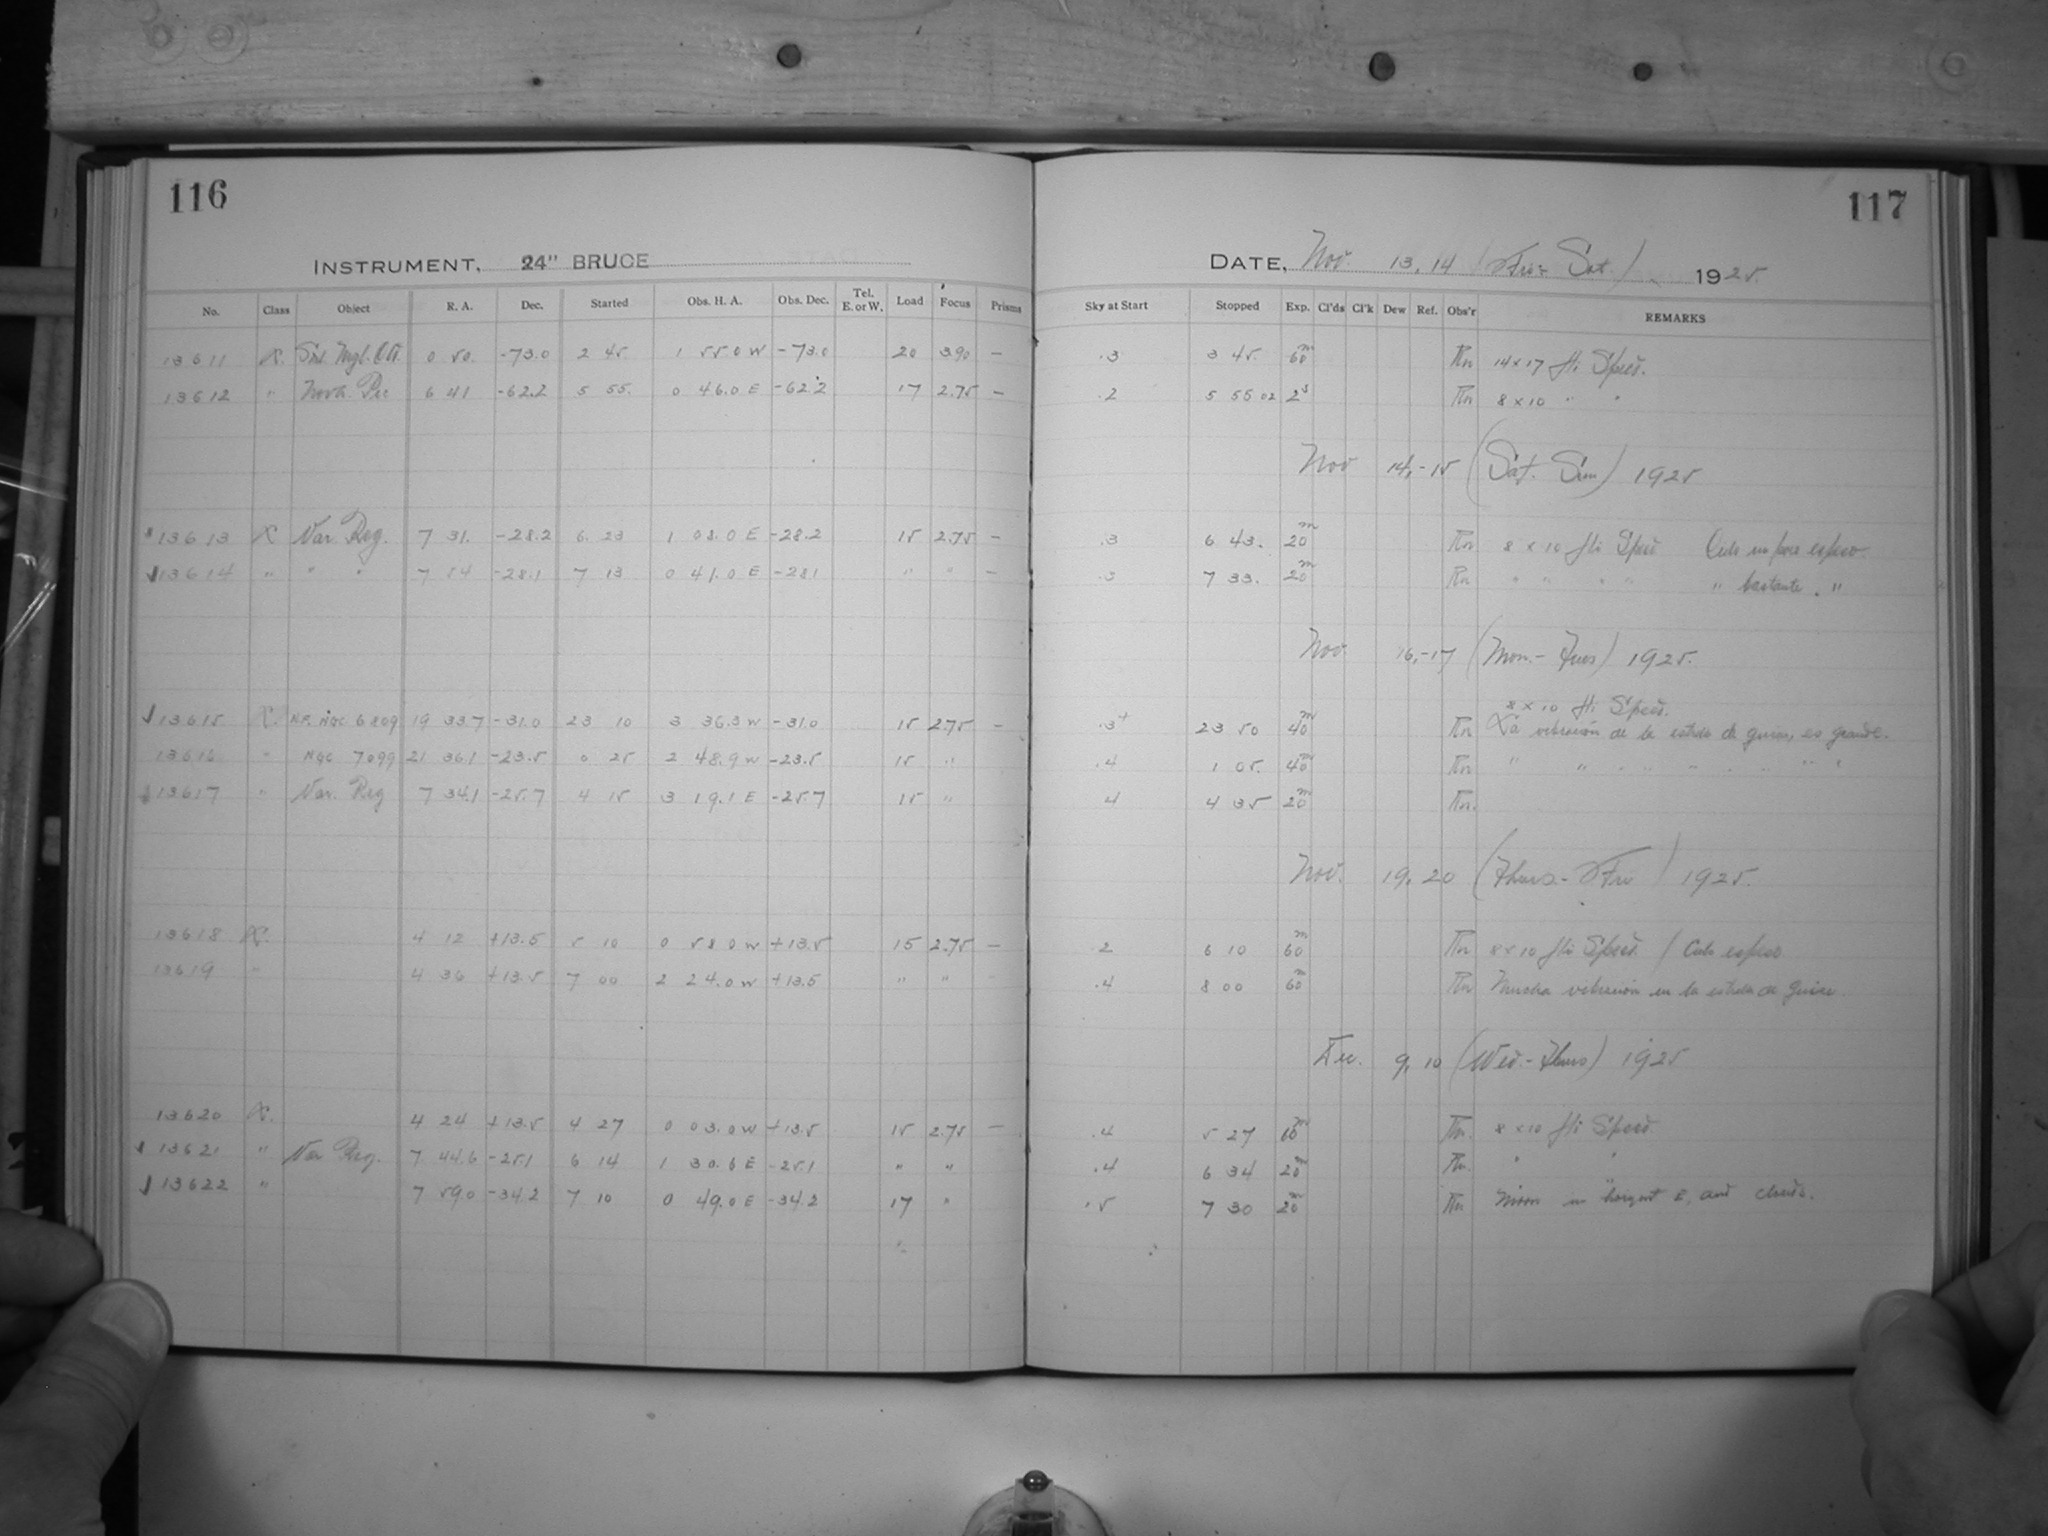 116
117
INSTRUMENT, 24" BRUCE
DATE, Nov. 13, 14 (Fri- Sat.) 1925.
No. Class Object R. A. Dec. Started Obs. H. A. Obs. Dec. Tel. E. or W. Load Focus Prisms Sky at Start Stopped Exp. Cl'ds Cl'k Dew Ref. Obs'r REMARKS
13611 X. 0 50. -73.0 2 45 1 55.0 W -73.0 20 3.90 — .3 3 45. 60m 14x17 Hi Speed.
13612 " Nova Pic 6 41 -62.2 5 55. 0 46.0 E -62.2 17 2.75 — .2 5 55 02 2s 8x10 " "
Nov 14,-15 (Sat. Sun) 1925
13613 X Var Reg. 7 31. -28.2 6. 23 1 08.0 E -28.2 15 2.75 — .3 6 43. 20m 8x10 Hi Speed Cielo un poco espeso.
13614 " " " 7 54 -28.1 7 13 0 41.0 E -281 " " — .3 7 33. 20m " " " " " bastante. "
Nov. 16,-17 (Mon.- Tues) 1925.
8x10 Hi Speed.
13615 X. NR. NGC 6809 19 33.7 -31.0 23 10 3 36.3 W -31.0 15 2.75 — .3+ 23 50 40m La vibración de la estrella de guiar, es grande.
13616 " NGC 7099 21 36.1 -23.5 0 25 2 48.9 W -23.5 15 " .4 1 05. 40m " " " " " " " "
13617 " Var. Reg 7 34.1 -25.7 4 15 3 19.1 E -25.7 15 " .4 4 35 20m
Nov. 19, 20 (Thurs.- Fri) 1925.
13618 X. 4 12 +13.5 5 10 0 58.0 W +13.5 15 2.75 — 2 6 10 60m 8x10 Hi Speed. / Cielo espeso
13619 " 4 36 +13.5 7 00 2 24.0 W +13.5 " " .4 8 00 60m Mucha vibración en la estrella de guiar.
Dec. 9, 10 (Wed.- Thurs) 1925
13620 X. 4 24 +13.5 4 27 0 03.0 W +13.5 15 2.75 — .4 5 27 60m 8x10 Hi Speed.
13621 " Var Reg. 7 44.6 -25.1 6 14 1 30.6 E -25.1 " " .4 6 34 20m " "
13622 " 7 59.0 -34.2 7 10 0 49.0 E -34.2 17 " .5 7 30 20m Moon in E, and clouds.